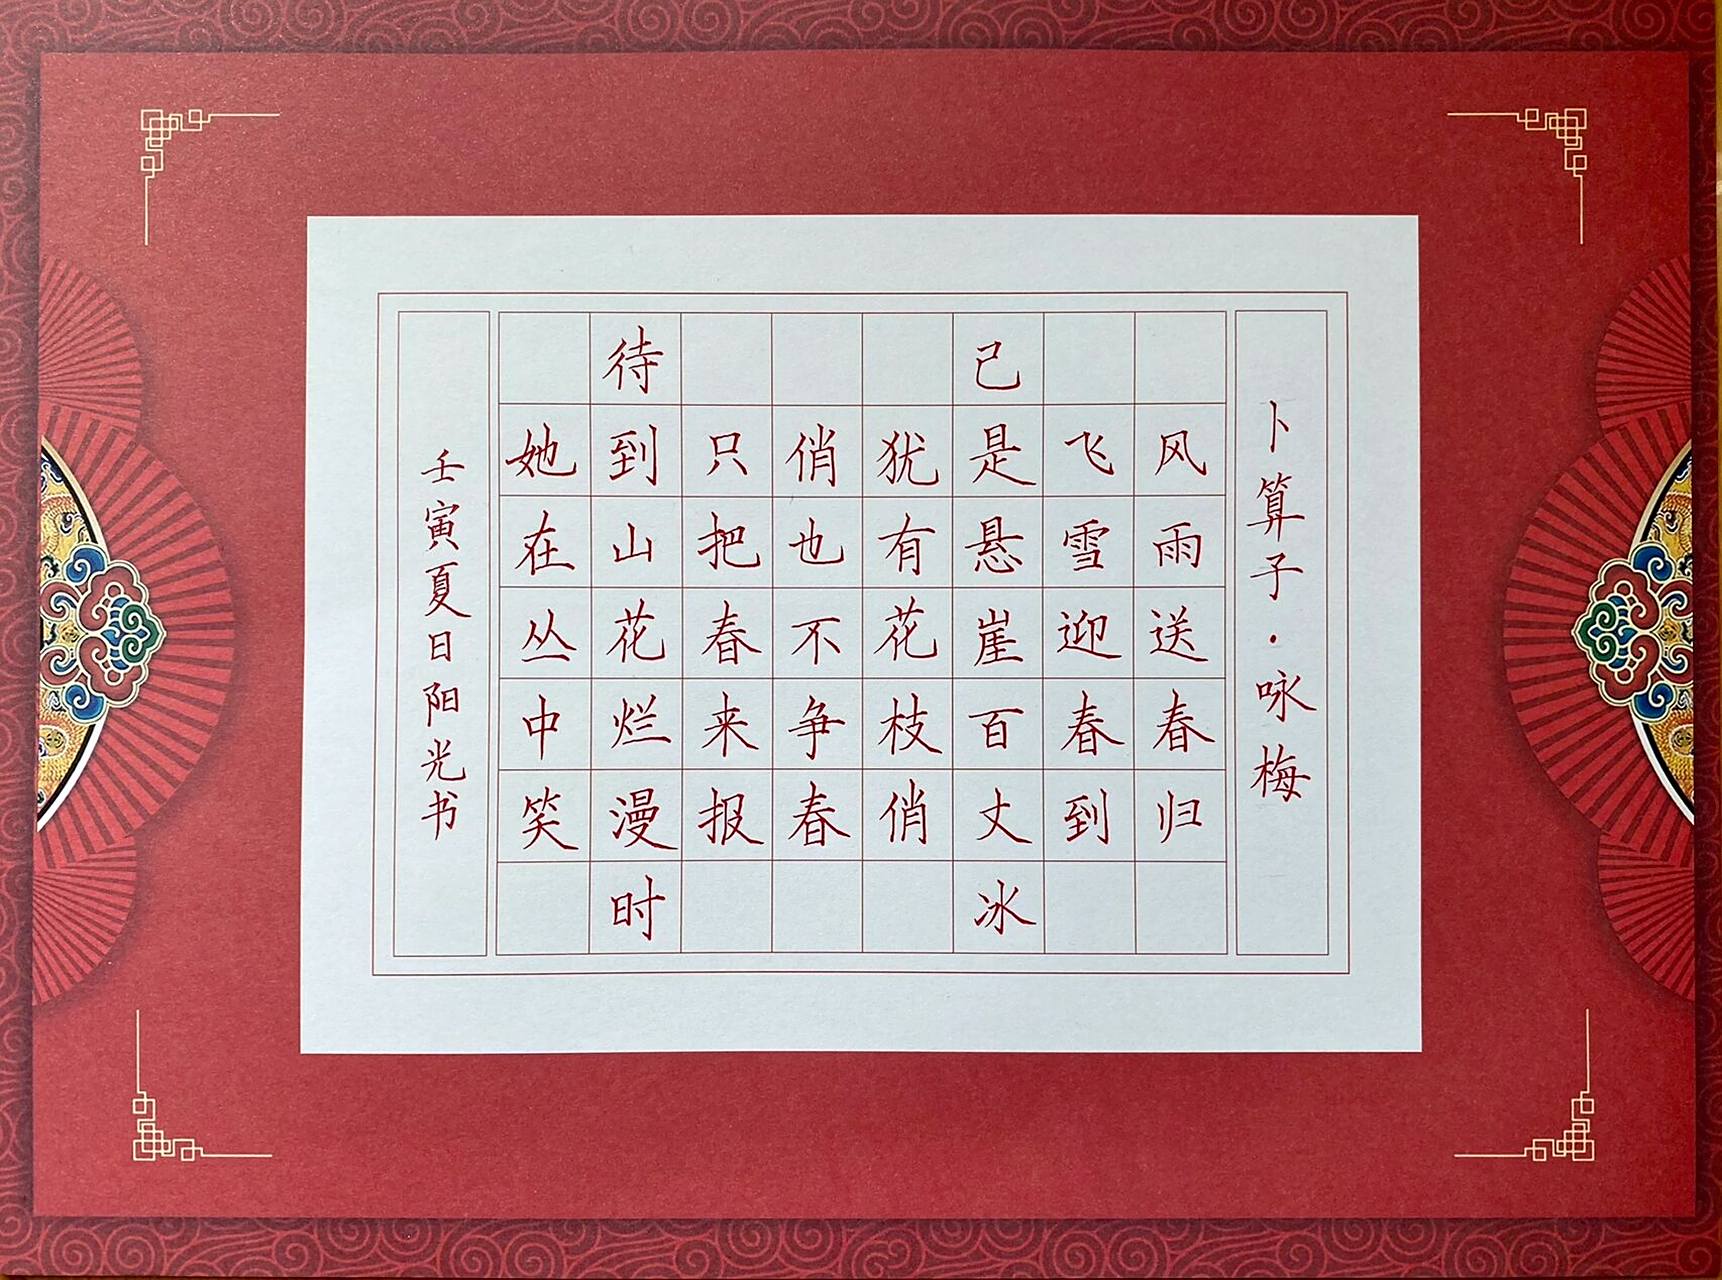 卜算子·咏梅
风雨送春归
飞雪迎春到
已是悬崖百丈冰
犹有花枝俏
俏也不争春
只把春来报
待到山花烂漫时
她在丛中笑
壬寅夏日阳光书